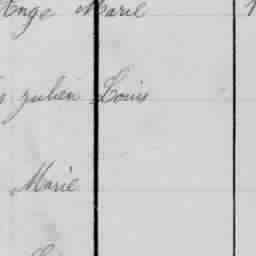 Ange Marie
julien Louis
Marie